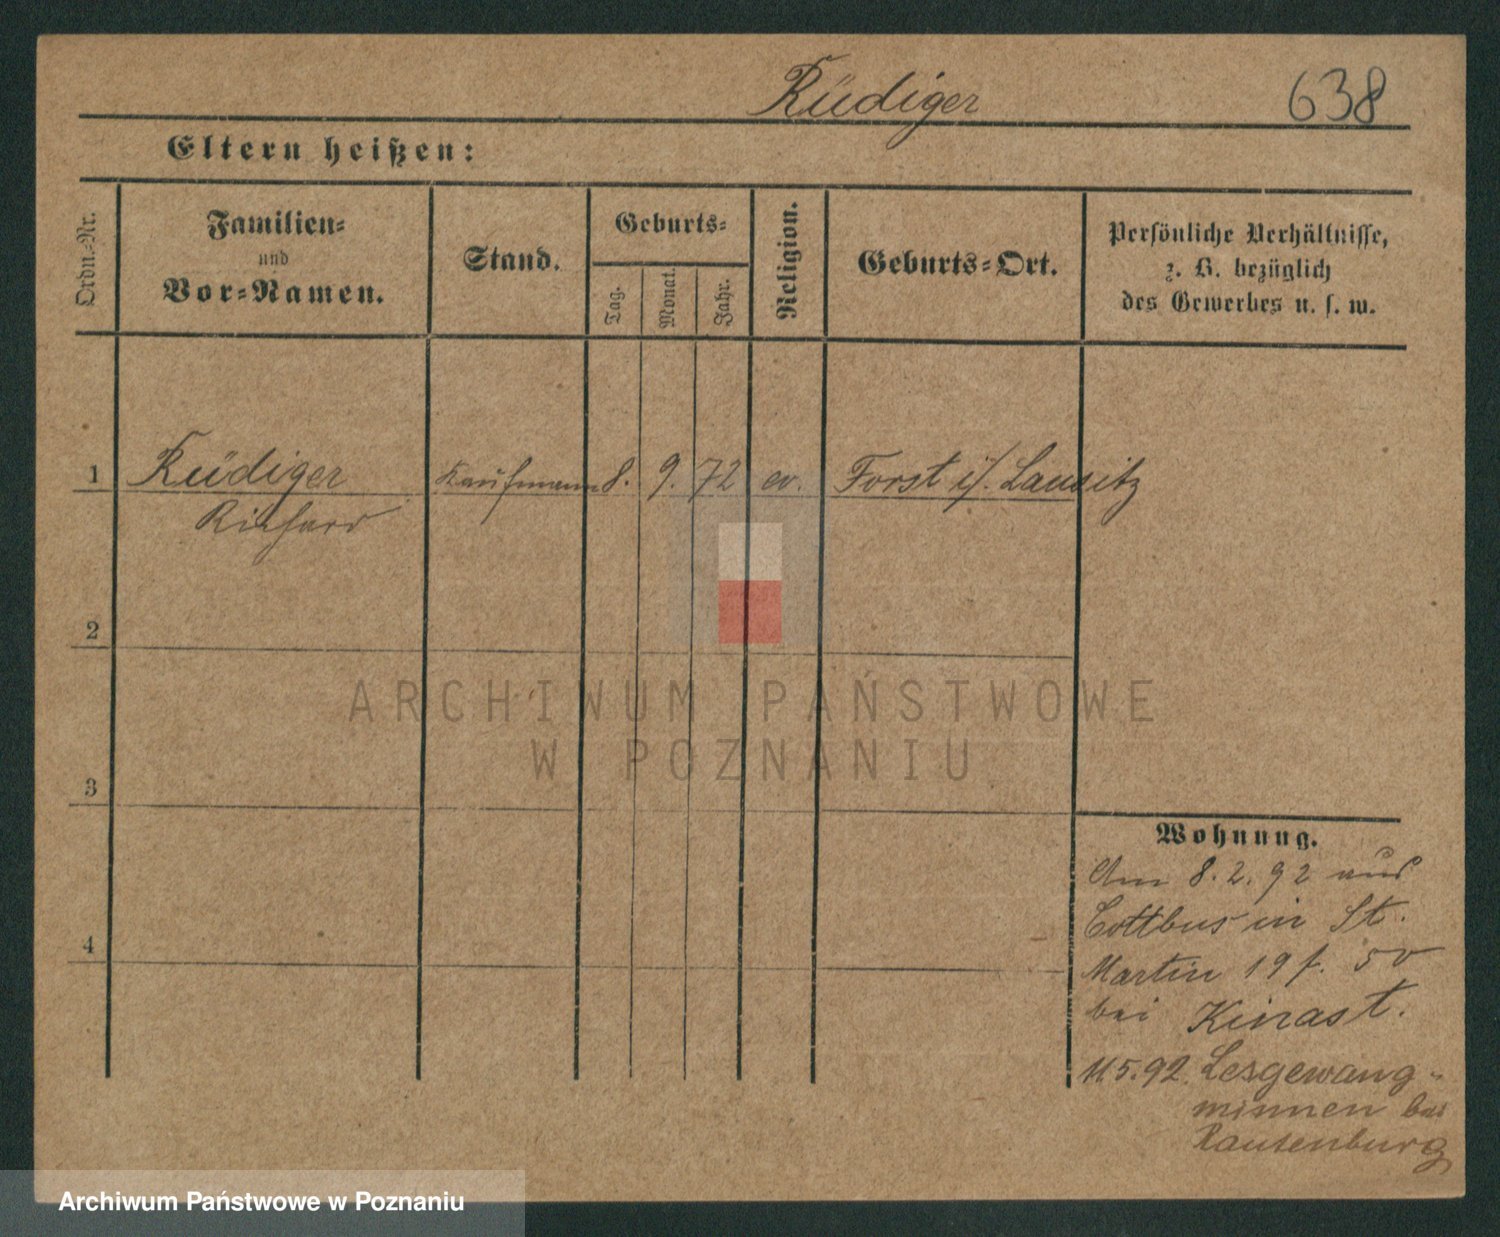 Rüdiger 638
Eltern heißen:
Ordn.-Nr.
Familien-
und
Vor-Namen.
Stand.
Geburts-
Tag.
Monat.
Jahr.
Religion.
Geburts-Ort.
Persönliche Verhältnisse,
z. B. bezüglich
des Gewerbes u. s. w.
1 Rüdiger Kaufmann 8. 9. 72 ev. Forst i/. Lausitz
Richard
2
3
4
Wohnung.
Am 8.2.92 aus
Cottbus in St.
Martin 19 f. 50
bei Kinast.
11 5.92. Lesgewang-
minnen bei
Rautenburg
ARCHIWUM PAŃSTWOWE
W POZNANIU
Archiwum Państwowe w Poznaniu